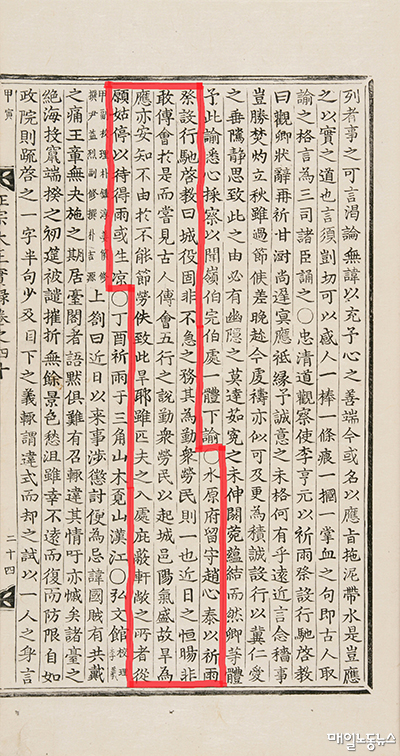 列者事之可言渴論無諱以充予心之善端今或名以應旨拖泥帶水是豈應
之以實之道也言須剴切可以感人一棒一條痕一摑一掌血之句卽古人取
諭之格言爲三司諸臣誦之○忠淸道觀察使李亨元以祈雨祭設行馳啓敎
曰觀卿狀辭再祈甘澍尙遲冥應祗緣予誠意之未格何有乎遠近言念穡事
豈勝焚灼立秋雖過節候差晚趁今虔禱亦似可及更爲積誠設行以冀仁愛
之垂隲靜思致此之由必有幽隱之莫達茹寃之未伸菀蘊結而然卿等體
予此諭悉心採察以聞嶺伯完伯處一體下諭○水原府留守趙心泰以祈雨
祭設行馳啓敎曰城役固非不急之務其爲勤衆勞民則一也近日之恒暘非
敢傅會於是而嘗見古人傅會五行之說勤衆勞民以起城邑陽氣盛故旱爲
應亦安知不由於不能節勞佚致此旱耶雖匹夫之入處庇廕軒敞之所者從
願姑停以待得雨或生凉○丁酉祈雨于三角山木覓山漢江○弘文館校理
甲副校理朴修撰尹益烈副修撰朴吉源上劄曰近日以來事涉懲討便爲忌諱國賊有共戴
之痛王章無夬施之期居臺閣者語默俱難有召輒違其情吁亦慽矣諸臺之
絶海投竄端揆之初遞被譴摧折無餘景色愁沮雖幸不遠而復而防限自如
政院則疏啓之一字半句少及目下之義輒謂違式而却之試以一人之身言
甲寅 正宗大王實錄卷之四十 二十四
매일노동뉴스